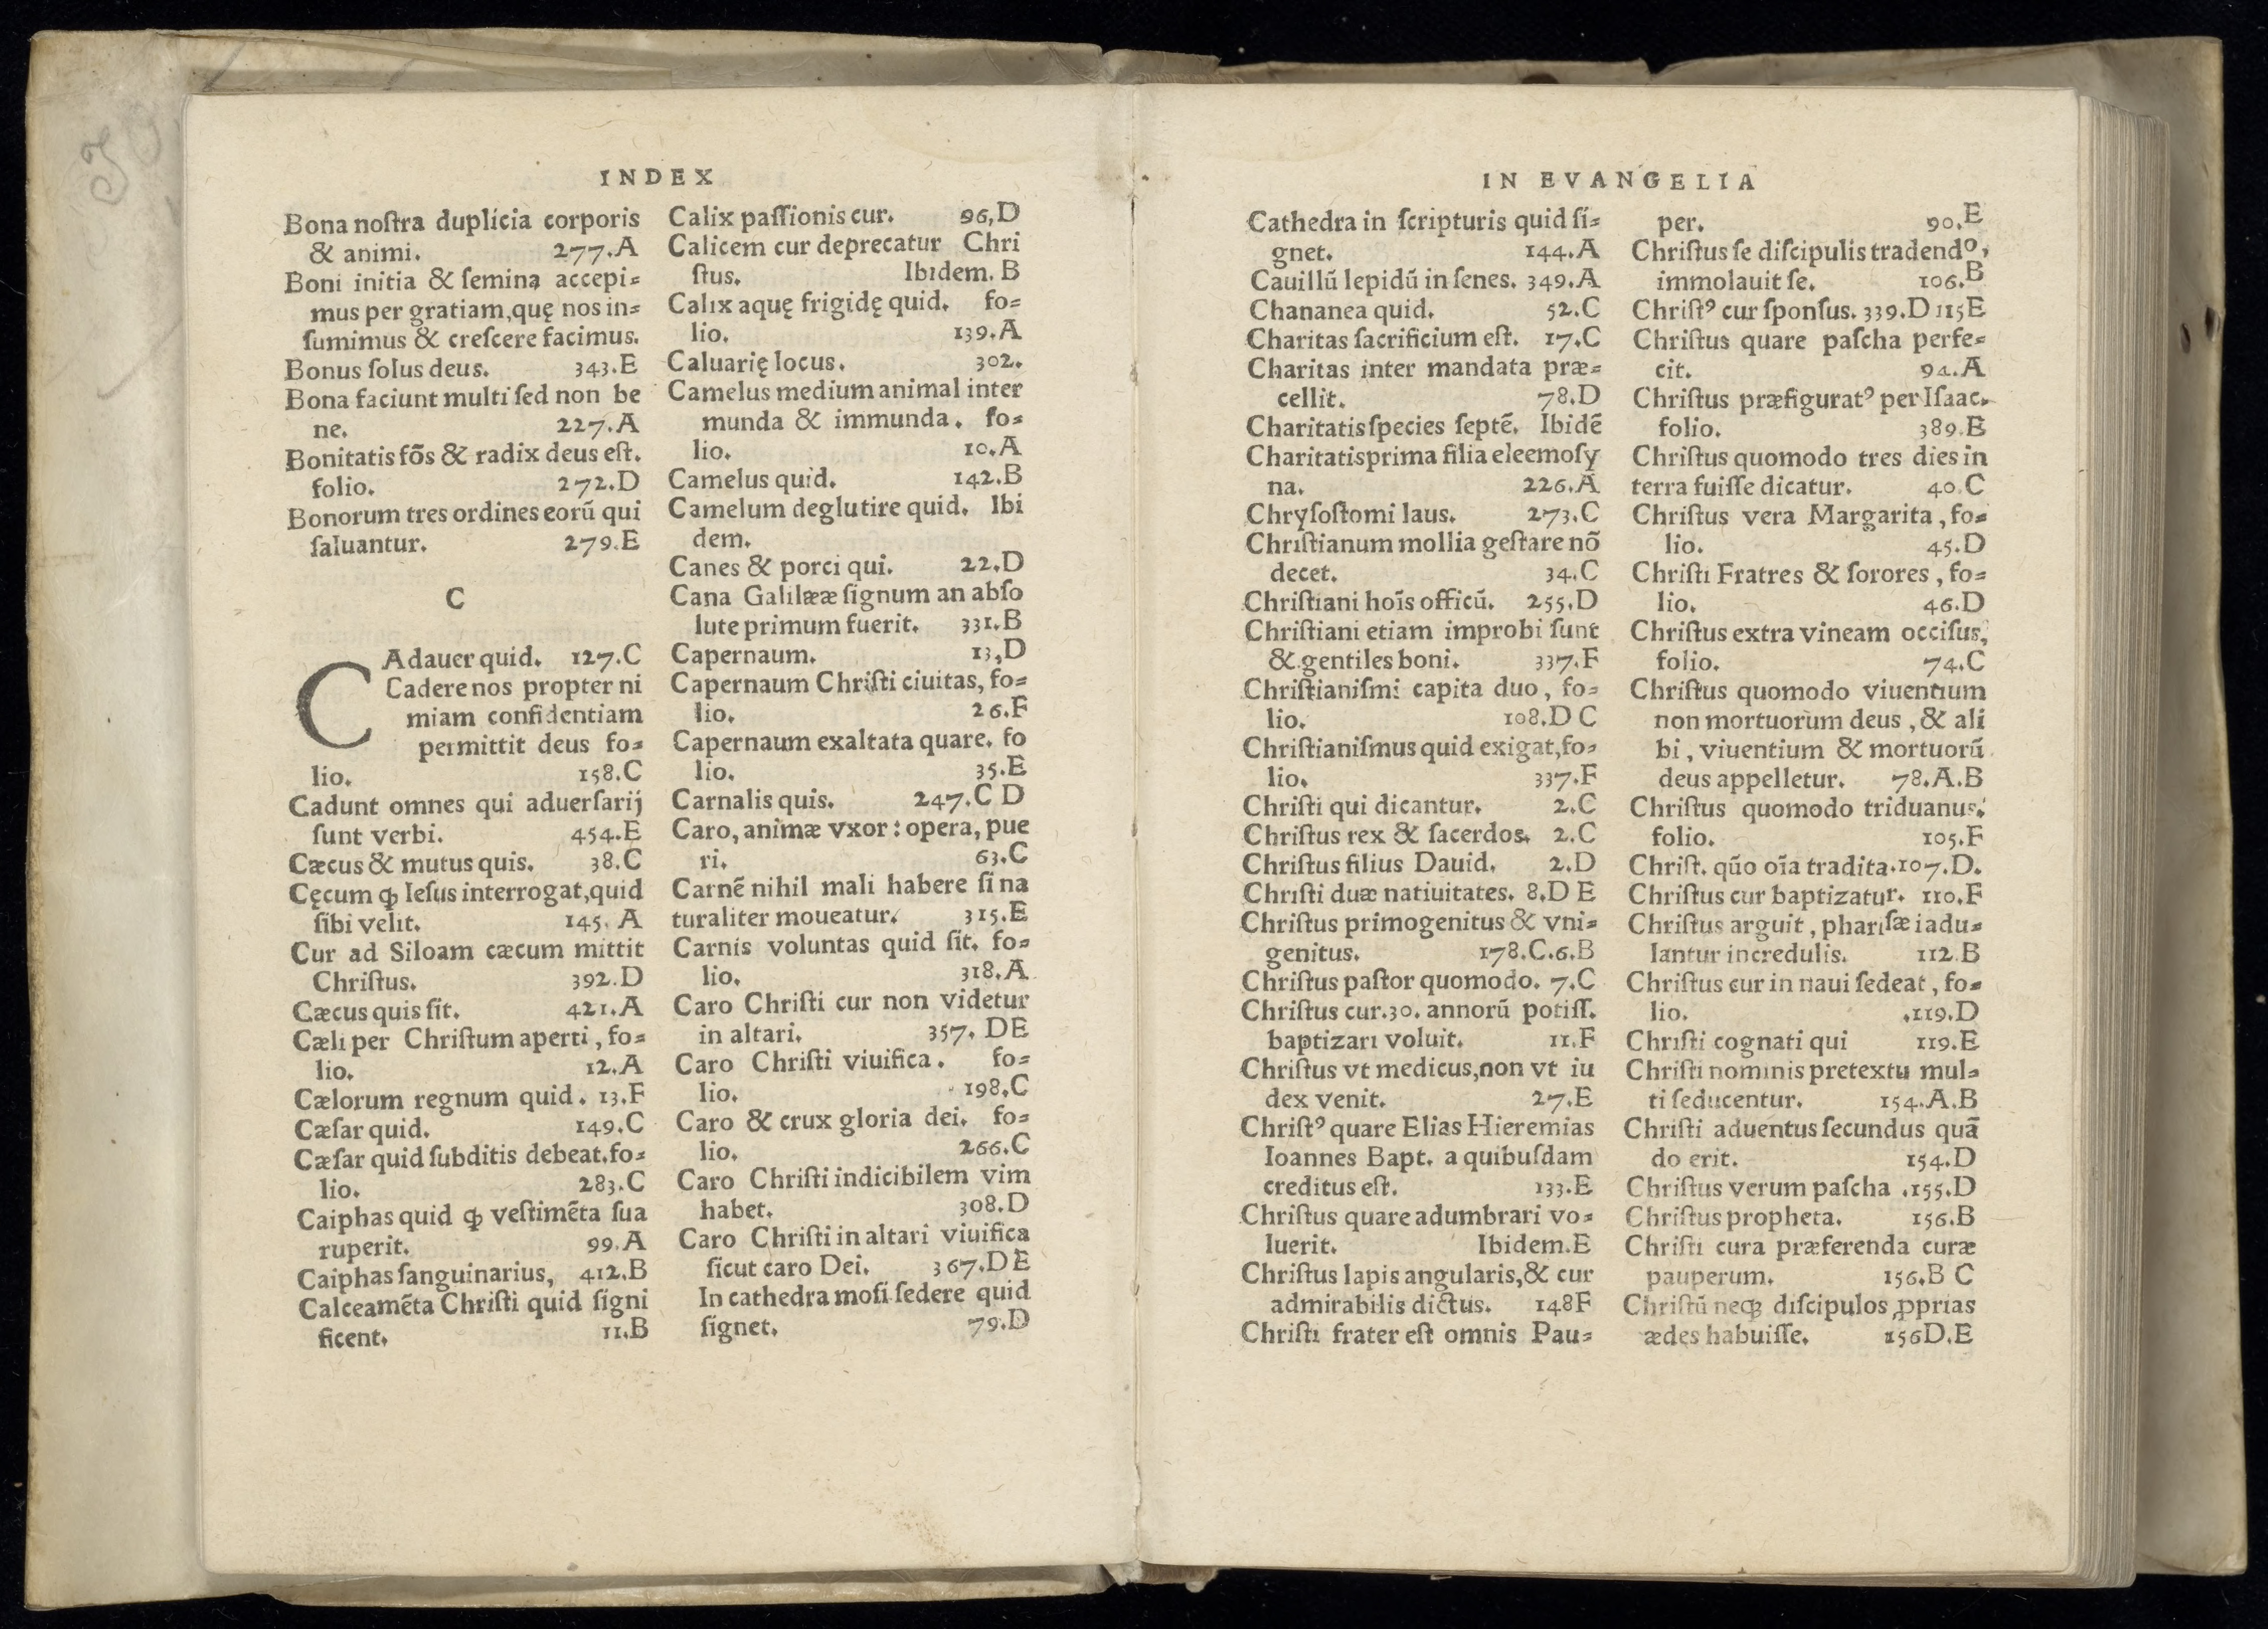 INDEX
Bona noſtra duplicia corporis
& animi. 277.A
Boni initia & ſemina accepi⸗
mus per gratiam,quę nos in⸗
ſumimus & creſcere facimus.
Bonus ſolus deus. 343.E
Bona faciunt multi ſed non be
ne. 227.A
Bonitatis fõs & radix deus eſt.
folio. 272.D
Bonorum tres ordines eorũ qui
ſaluantur. 279.E
C
CAdauer quid. 127.C
Cadere nos propter ni
miam confidentiam
permittit deus fo⸗
lio. 158.C
Cadunt omnes qui aduerſarij
ſunt verbi. 454.E
Cæcus & mutus quis. 38.C
Cęcum ꝙ Ieſus interrogat,quid
ſibi velit. 145. A
Cur ad Siloam cæcum mittit
Chriſtus. 392.D
Cæcus quis ſit. 421.A
Cæli per Chriſtum aperti, fo⸗
lio. 12.A
Cælorum regnum quid. 13.F
Cæſar quid. 149.C
Cæſar quid ſubditis debeat.fo⸗
lio. 283.C
Caiphas quid ꝙ veſtimẽta ſua
ruperit. 99.A
Caiphas ſanguinarius, 412.B
Calceamẽta Chriſti quid ſigni
ficent. 11.B
Calix paſſionis cur. 96,D
Calicem cur deprecatur Chri
ſtus. Ibidem. B
Calix aquę frigidę quid. fo⸗
lio. 139.A
Caluarię locus. 302.
Camelus medium animal inter
munda & immunda. fo⸗
lio. 10.A
Camelus quid. 142.B
Camelum deglutire quid. Ibi
dem.
Canes & porci qui. 22.D
Cana Galilææ ſignum an abſo
lute primum fuerit. 331.B
Capernaum. 13,D
Capernaum Chriſti ciuitas, fo⸗
lio. 26.F
Capernaum exaltata quare. fo
lio. 35.E
Carnalis quis. 247.C D
Caro, animæ vxor: opera, pue
ri. 63.C
Carnẽ nihil mali habere ſi na
turaliter moueatur. 315.E
Carnis voluntas quid ſit. fo⸗
lio. 318.A
Caro Chriſti cur non videtur
in altari. 357. DE
Caro Chriſti viuifica. fo⸗
lio. 198.C
Caro & crux gloria dei. fo⸗
lio. 266.C
Caro Chriſti indicibilem vim
habet. 308.D
Caro Chriſti in altari viuifica
ſicut caro Dei. 367.DE
In cathedra moſi ſedere quid
ſignet. 79.D
IN EVANGELIA
Cathedra in ſcripturis quid ſi⸗
gnet. 144.A
Cauillũ lepidũ in ſenes. 349.A
Chananea quid. 52.C
Charitas ſacrificium eſt. 17.C
Charitas inter mandata præ⸗
cellit. 78.D
Charitatis ſpecies ſeptẽ. Ibidẽ
Charitatis prima filia eleemoſy
na. 226.A
Chryſoſtomi laus. 273.C
Chriſtianum mollia geſtare nõ
decet. 34.C
Chriſtiani hoĩs officũ. 255.D
Chriſtiani etiam improbi ſunt
& gentiles boni. 337.F
Chriſtianiſmi capita duo, fo⸗
lio. 108.D C
Chriſtianiſmus quid exigat,fo⸗
lio. 337.F
Chriſti qui dicantur. 2.C
Chriſtus rex & ſacerdos. 2.C
Chriſtus filius Dauid. 2.D
Chriſti duæ natiuitates. 8.D E
Chriſtus primogenitus & vni⸗
genitus. 178.C.6.B
Chriſtus paſtor quomodo. 7.C
Chriſtus cur.30. annorũ potiſſ.
baptizari voluit. 11.F
Chriſtus vt medicus,non vt iu
dex venit. 27.E
Chriſtꝰ quare Elias Hieremias
Ioannes Bapt. a quibuſdam
creditus eſt. 133.E
Chriſtus quare adumbrari vo⸗
luerit. Ibidem.E
Chriſtus lapis angularis,& cur
admirabilis dictus. 148F
Chriſti frater eſt omnis Pau⸗
per. 90.E
Chriſtus ſe diſcipulis tradendo,
immolauit ſe. 106.B
Chriſtꝰ cur ſponſus. 339.D 115E
Chriſtus quare paſcha perfe⸗
cit. 94.A
Chriſtus præfiguratꝰ per Iſaac.
folio. 389.E
Chriſtus quomodo tres dies in
terra fuiſſe dicatur. 40.C
Chriſtus vera Margarita, fo⸗
lio. 45.D
Chriſti Fratres & ſorores, fo⸗
lio. 46.D
Chriſtus extra vineam occiſus,
folio. 74.C
Chriſtus quomodo viuentium
non mortuorum deus, & ali
bi, viuentium & mortuorũ
deus appelletur. 78.A.B
Chriſtus quomodo triduanus.
folio. 105.F
Chriſt. qũo oĩa tradita.107.D.
Chriſtus cur baptizatur. 110.F
Chriſtus arguit, phariſæi adu⸗
lantur incredulis. 112.B
Chriſtus cur in naui ſedeat, fo⸗
lio. .119.D
Chriſti cognati qui 119.E
Chriſti nominis pretextu mul⸗
ti ſeducentur. 154.A.B
Chriſti aduentus ſecundus quã
do erit. 154.D
Chriſtus verum paſcha .155.D
Chriſtus propheta. 156.B
Chriſti cura præferenda curæ
pauperum. 156.B C
Chriſtũ neqꝫ diſcipulos ꝓprias
ædes habuiſſe. 156D.E